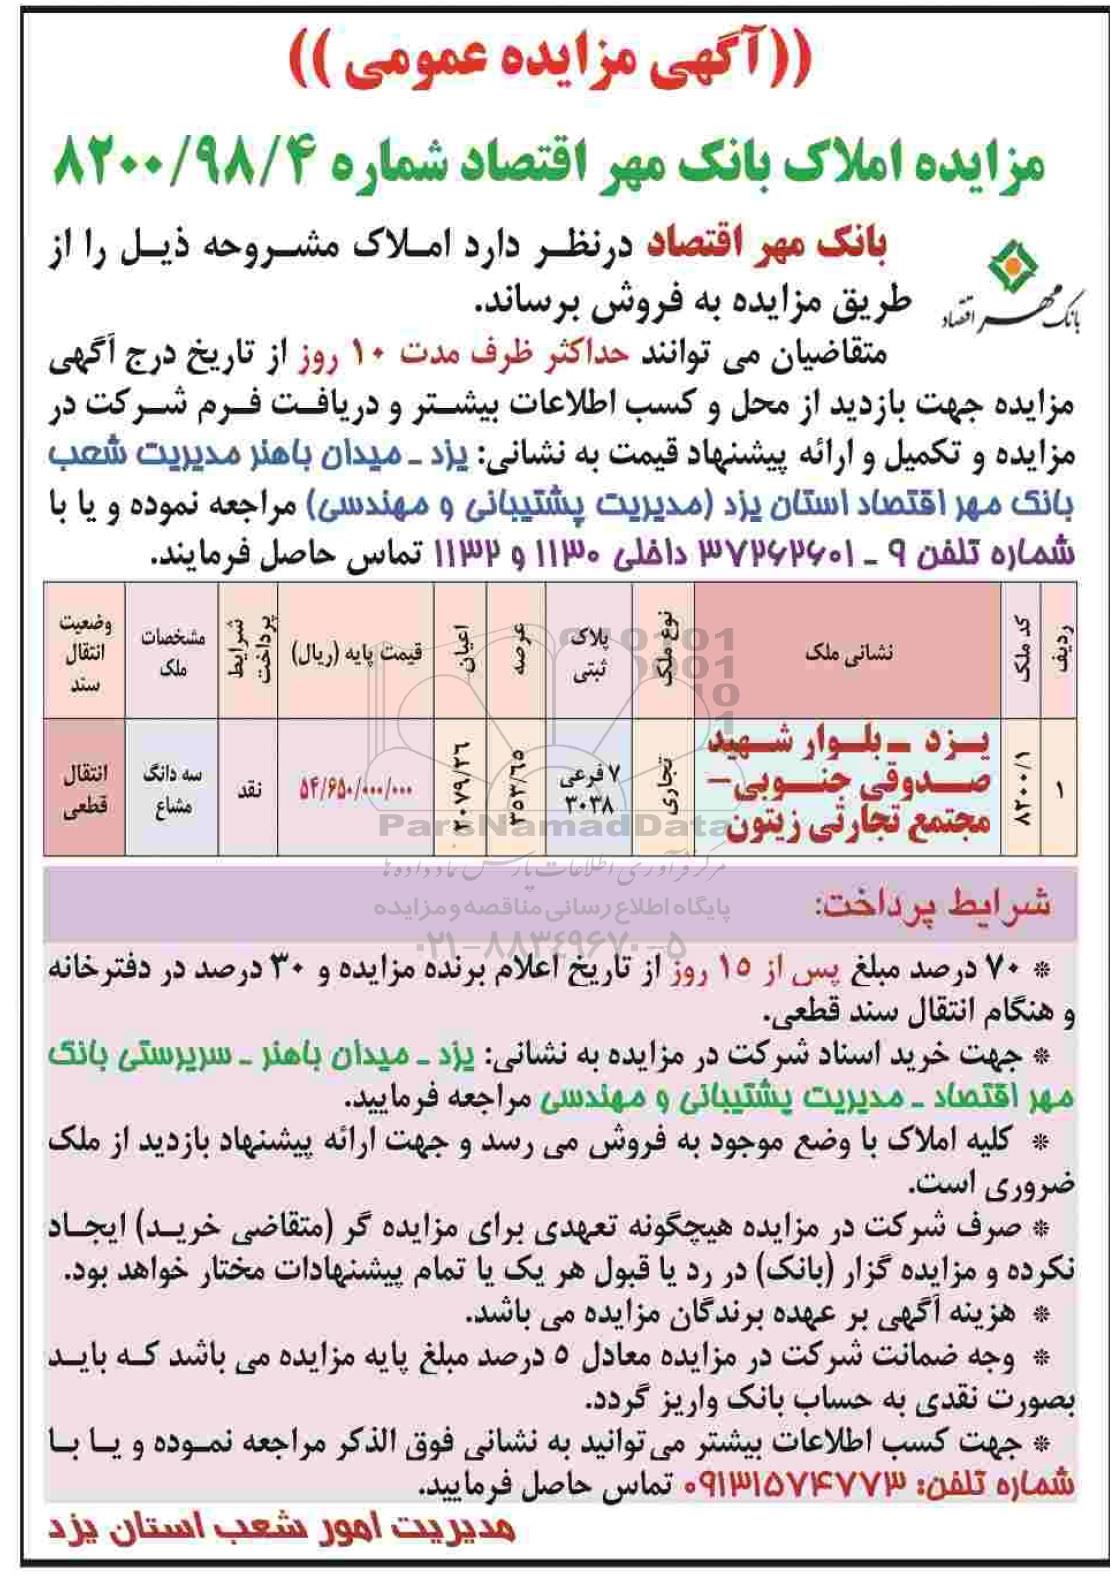 ((آگهی مزایده عمومی))
مزایده املاک بانک مهر اقتصاد شماره ۸۲۰۰/۹۸/۴
بانک مهر اقتصاد
بانک مهر اقتصاد درنظر دارد املاک مشروحه ذیل را از
طریق مزایده به فروش برساند.
متقاضیان می توانند حداکثر ظرف مدت ۱۰ روز از تاریخ درج آگهی
مزایده جهت بازدید از محل و کسب اطلاعات بیشتر و دریافت فرم شرکت در
مزایده و تکمیل و ارائه پیشنهاد قیمت به نشانی: یزد ـ میدان باهنر مدیریت شعب
بانک مهر اقتصاد استان یزد (مدیریت پشتیبانی و مهندسی) مراجعه نموده و یا با
شماره تلفن ۹ ـ ۳۷۲۶۲۶۰۱ داخلی ۱۱۳۰ و ۱۱۳۲ تماس حاصل فرمایند.
ردیف
کد ملک
نشانی ملک
نوع ملک
پلاک
ثبتی
عرصه
اعیان
قیمت پایه (ریال)
شرایط
پرداخت
مشخصات
ملک
وضعیت
انتقال
سند
۱
۸۲۰۰/۱
یزد ـ بلوار شهید
صدوقی جنوبی–
مجتمع تجارتی زیتون
تجاری
۷ فرعی
۳۰۳۸
۳۵۳/۶۵
۲۰۷۹/۲۶
۵۴/۶۵۰/۰۰۰/۰۰۰
نقد
سه دانگ
مشاع
انتقال
قطعی
ParsNamadData
مرکز فرآوری اطلاعات پارس نماد داده ها
پایگاه اطلاع رسانی مناقصه و مزایده
۰۲۱-۸۸۳۴۹۶۷۰-۵
شرایط پرداخت:
* ۷۰ درصد مبلغ پس از ۱۵ روز از تاریخ اعلام برنده مزایده و ۳۰ درصد در دفترخانه
و هنگام انتقال سند قطعی.
* جهت خرید اسناد شرکت در مزایده به نشانی: یزد ـ میدان باهنر ـ سرپرستی بانک
مهر اقتصاد ـ مدیریت پشتیبانی و مهندسی مراجعه فرمایید.
* کلیه املاک با وضع موجود به فروش می رسد و جهت ارائه پیشنهاد بازدید از ملک
ضروری است.
* صرف شرکت در مزایده هیچگونه تعهدی برای مزایده گر (متقاضی خرید) ایجاد
نکرده و مزایده گزار (بانک) در رد یا قبول هر یک یا تمام پیشنهادات مختار خواهد بود.
* هزینه آگهی بر عهده برندگان مزایده می باشد.
* وجه ضمانت شرکت در مزایده معادل ۵ درصد مبلغ پایه مزایده می باشد که باید
بصورت نقدی به حساب بانک واریز گردد.
* جهت کسب اطلاعات بیشتر می‌توانید به نشانی فوق الذکر مراجعه نموده و یا با
شماره تلفن: ۰۹۱۳۱۵۷۴۷۷۳ تماس حاصل فرمایید.
مدیریت امور شعب استان یزد